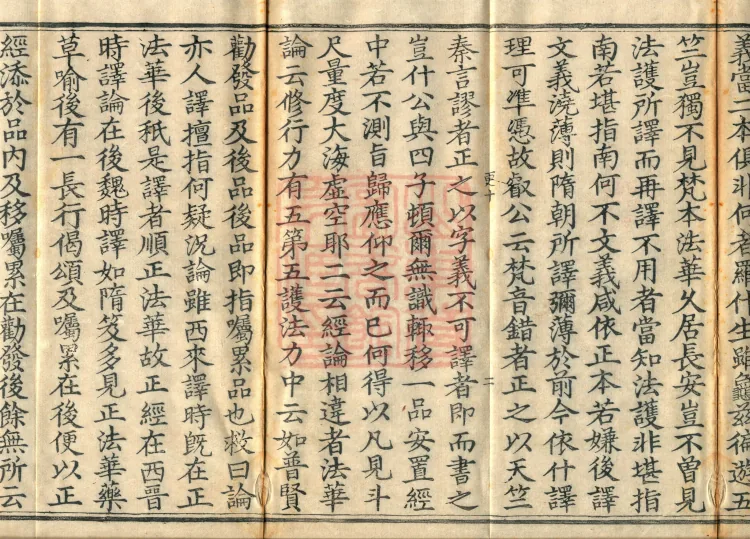 義當二本俱非何者羅什生雖龜茲徧遊五
竺豈獨不見梵本法華久居長安豈不曾見
法護所譯而再譯不用者當知法護非堪指
南若堪指南何不文義咸依正本若嫌後譯
文義澆薄則隋朝所譯彌薄於前今依什譯
理可準憑故叡公云梵音錯者正之以天竺
更十
二
秦言謬者正之以字義不可譯者即而書之
豈什公與四子頓爾無識輒移一品安置經
中若不測旨歸應仰之而已何得以凡見斗
尺量度大海虛空耶二云經論相違者法華
論云修行力有五第五護法力中云如普賢
勸發品及後品後品即指囑累品也救曰論
亦人譯擅指何疑況論雖西來譯時既在正
法華後秖是譯者順正法華故正經在西晉
時譯論在後魏時譯如隋笈多見正法華藥
草喻後有一長行偈頌及囑累在後便以正
經添於品內及移囑累在勸發後餘無所云